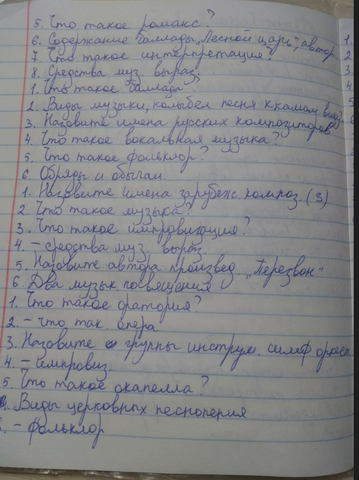 5. Что такое романс?
6. Содержание баллады „Лесной царь", автор
7 Что такое интерпретация?
8. Средства муз. выраз.
1. Что такое баллада?
2. Виды музыки, колыбел песня к каким
3. Назовите имена русских композиторов
4. Что такое вокальная музыка?
5. Что такое фольклор?
6. Обряды и обычаи.
1. Назовите имена зарубеж. композ. (5)
2 Что такое музыка?
3. Что такое импровизация?
4. – средства муз. выраз.
5. Назовите автора произвед. „Перезвон"
6 Два музык посвящения
1. Что такое оратория?
2. – что так. опера
3. Назовите группы инструм. симф оркест
4. – Импровиз.
5. Что такое акапелла?
6. Виды церковных песнопения
– фольклор